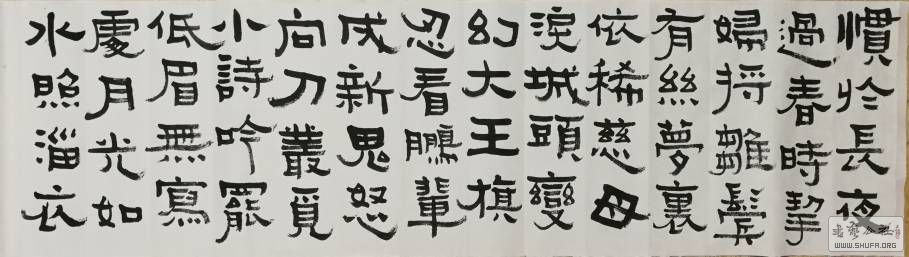 慣於長夜
過春時挈
婦将雛鬢
有絲夢裏
依稀慈母
淚城頭變
幻大王旗
忍看鵬輩
成新鬼怒
向刀叢覓
小詩吟罷
低眉無寫
處月光如
水照淄衣
WWW.SHUFA.ORG